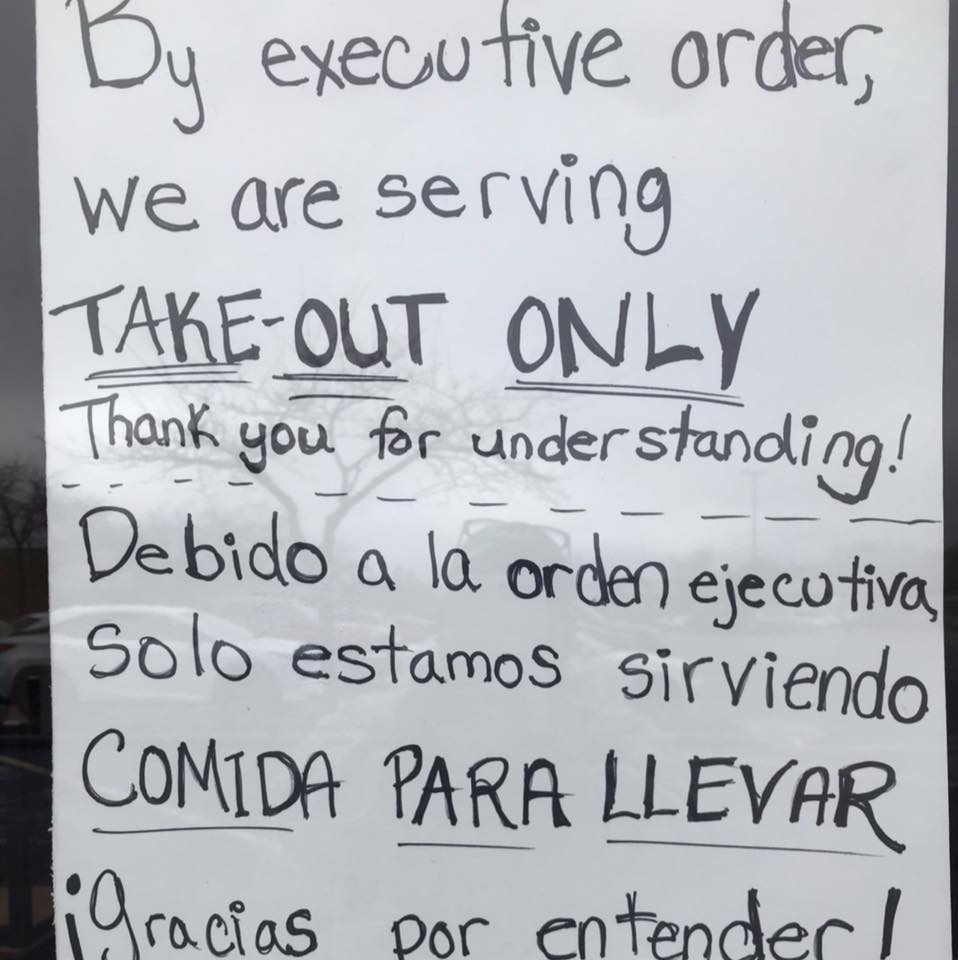 By executive order,
we are serving
TAKE-OUT ONLY
Thank you for understanding!
Debido a la orden ejecutiva,
solo estamos sirviendo
COMIDA PARA LLEVAR
¡Gracias por entender!